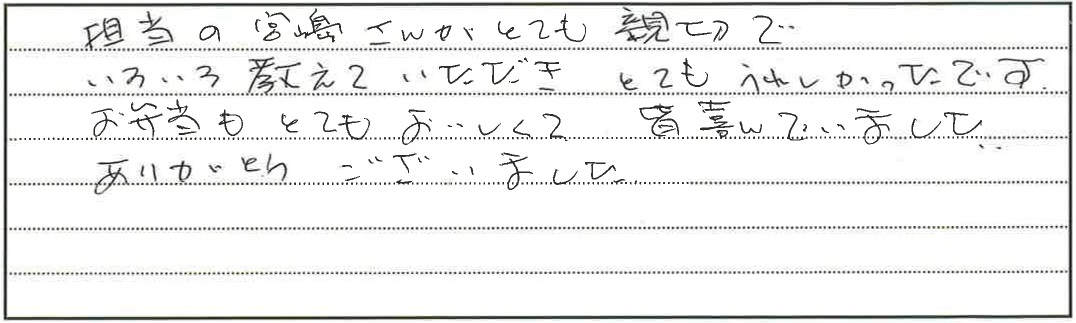 担当の宮嶋さんがとても親切で
いろいろ教えていただき とても うれしかったです.
お弁当もとてもおいしくて 皆喜んでいました
ありがとう ございました